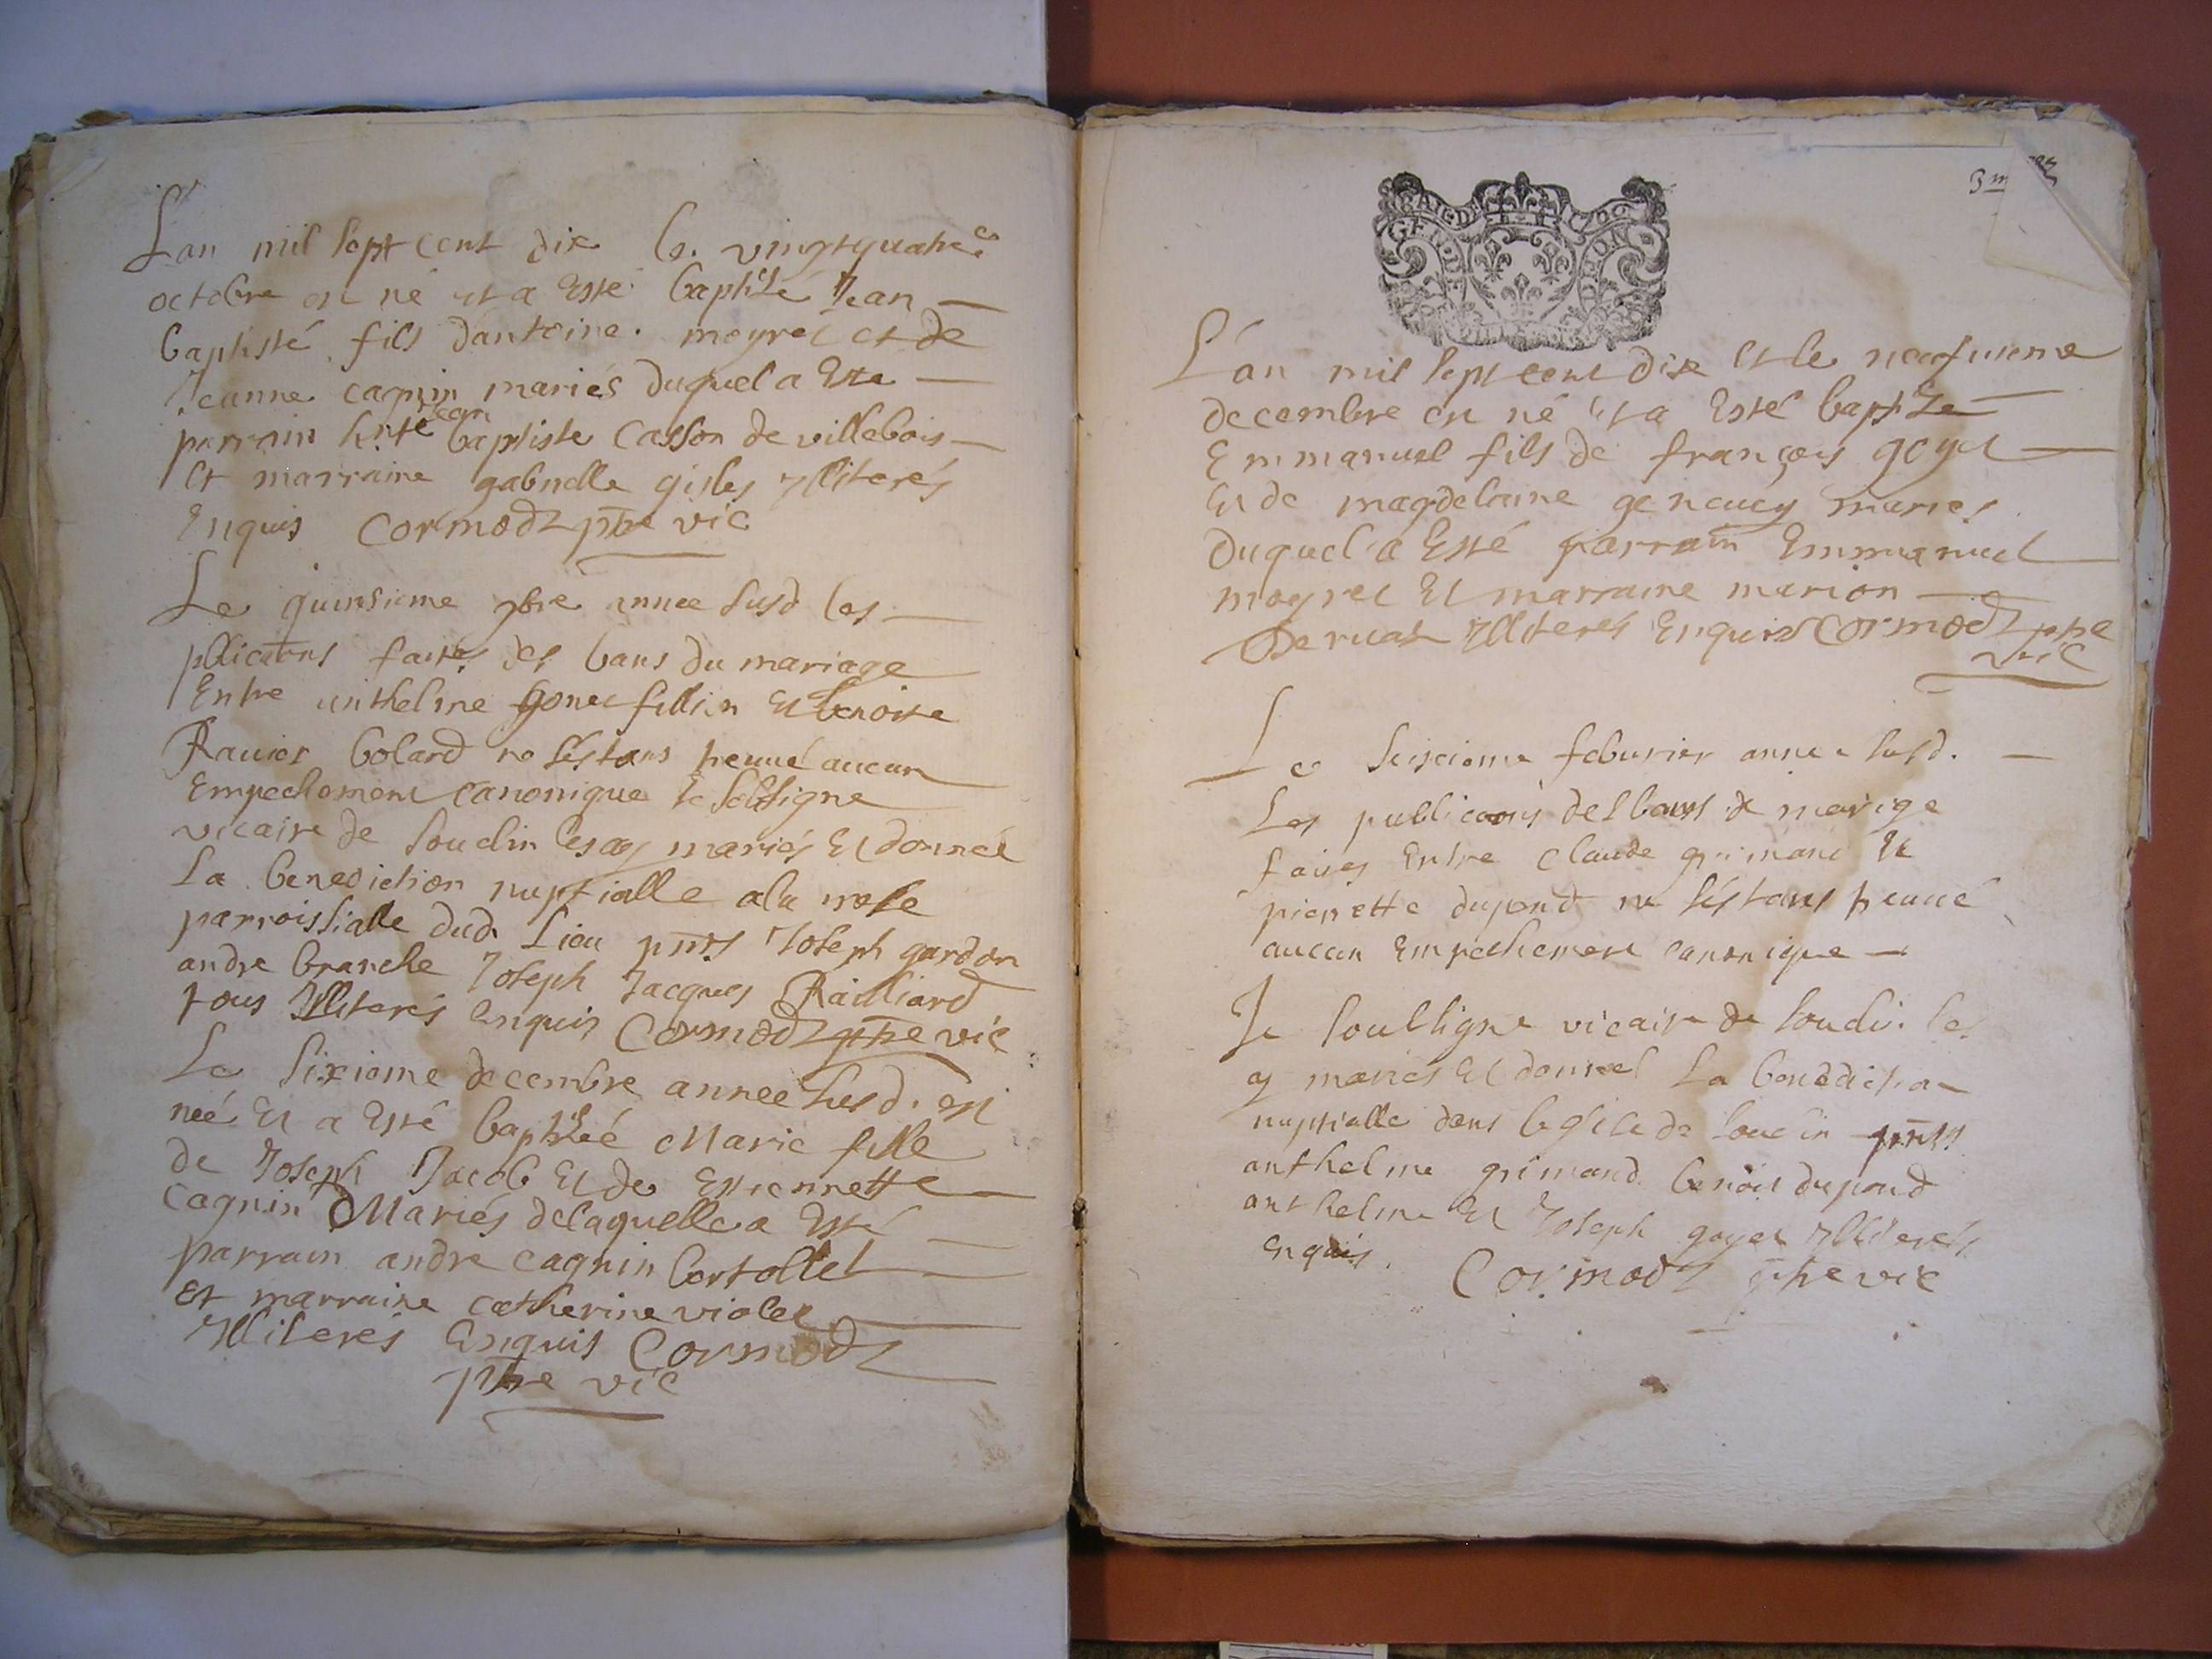 L'an mil sept cent dix le vingtquatre
octobre est né et a Esté baptisé Jean
baptiste fils d'antoine moyret et de
Jeanne cagnin mariés duquel a Este
parrain Jean baptiste Casson de villebois
Et marraine gabrielle gisles ylliterés
Enquis Cormodz ptre vic
Le quinsieme 9bre annee susd les
publications faites des bans du mariage
Entre anthelme gonet fillion Et benoite
Ravier bolard ne sestans treuvé aucun
Empechement canonique Je Soubsigne
vicaire de Soudin les ay mariés Et donneé
La benediction nuptialle a la messe
parroissialle dud. Lieu pnts Joseph gardon
andre branche Joseph Jacques Railliard
tous Illiterés Enquis Cormodz ptre vic
Le Sixieme decembre annee susd. est
neé Et a Esté baptiseé Marie fille
de Joseph Jacob Et de Estiennette
cagnin Mariés delaquelle a Esté
parrain andre cagnin bertollet
Et marraine catherine violet
Yllilerés Enquis Cormodz
ptre vic
3m
GEN.DE
L'an mil sept cent dix Et le neufvieme
decembre est né Et a Esté baptisé
Emmanuel fils de françois goyet
Et de magdelaine mariés
Duquel a Esté parrain Emmanuel
moyret Et marraine marion
Deruat Ylliterés Enquis Cormodz ptre
vic
Le Seisieme feburier annee susd.
Les publicaons des bans de mariage
faites Entre Claude grimand Et
pierrette dupond ne sestans treuvé
aucun Empechement canonique
Je soubsigne vicaire de Soudin les
ay mariés Et donneé La benediction
nuptialle dans leglise de Soudin pnts
anthelme grimand benoit dupond
anthelme Et Joseph goyet Ylliterés
enquis.
Cormodz ptre vic